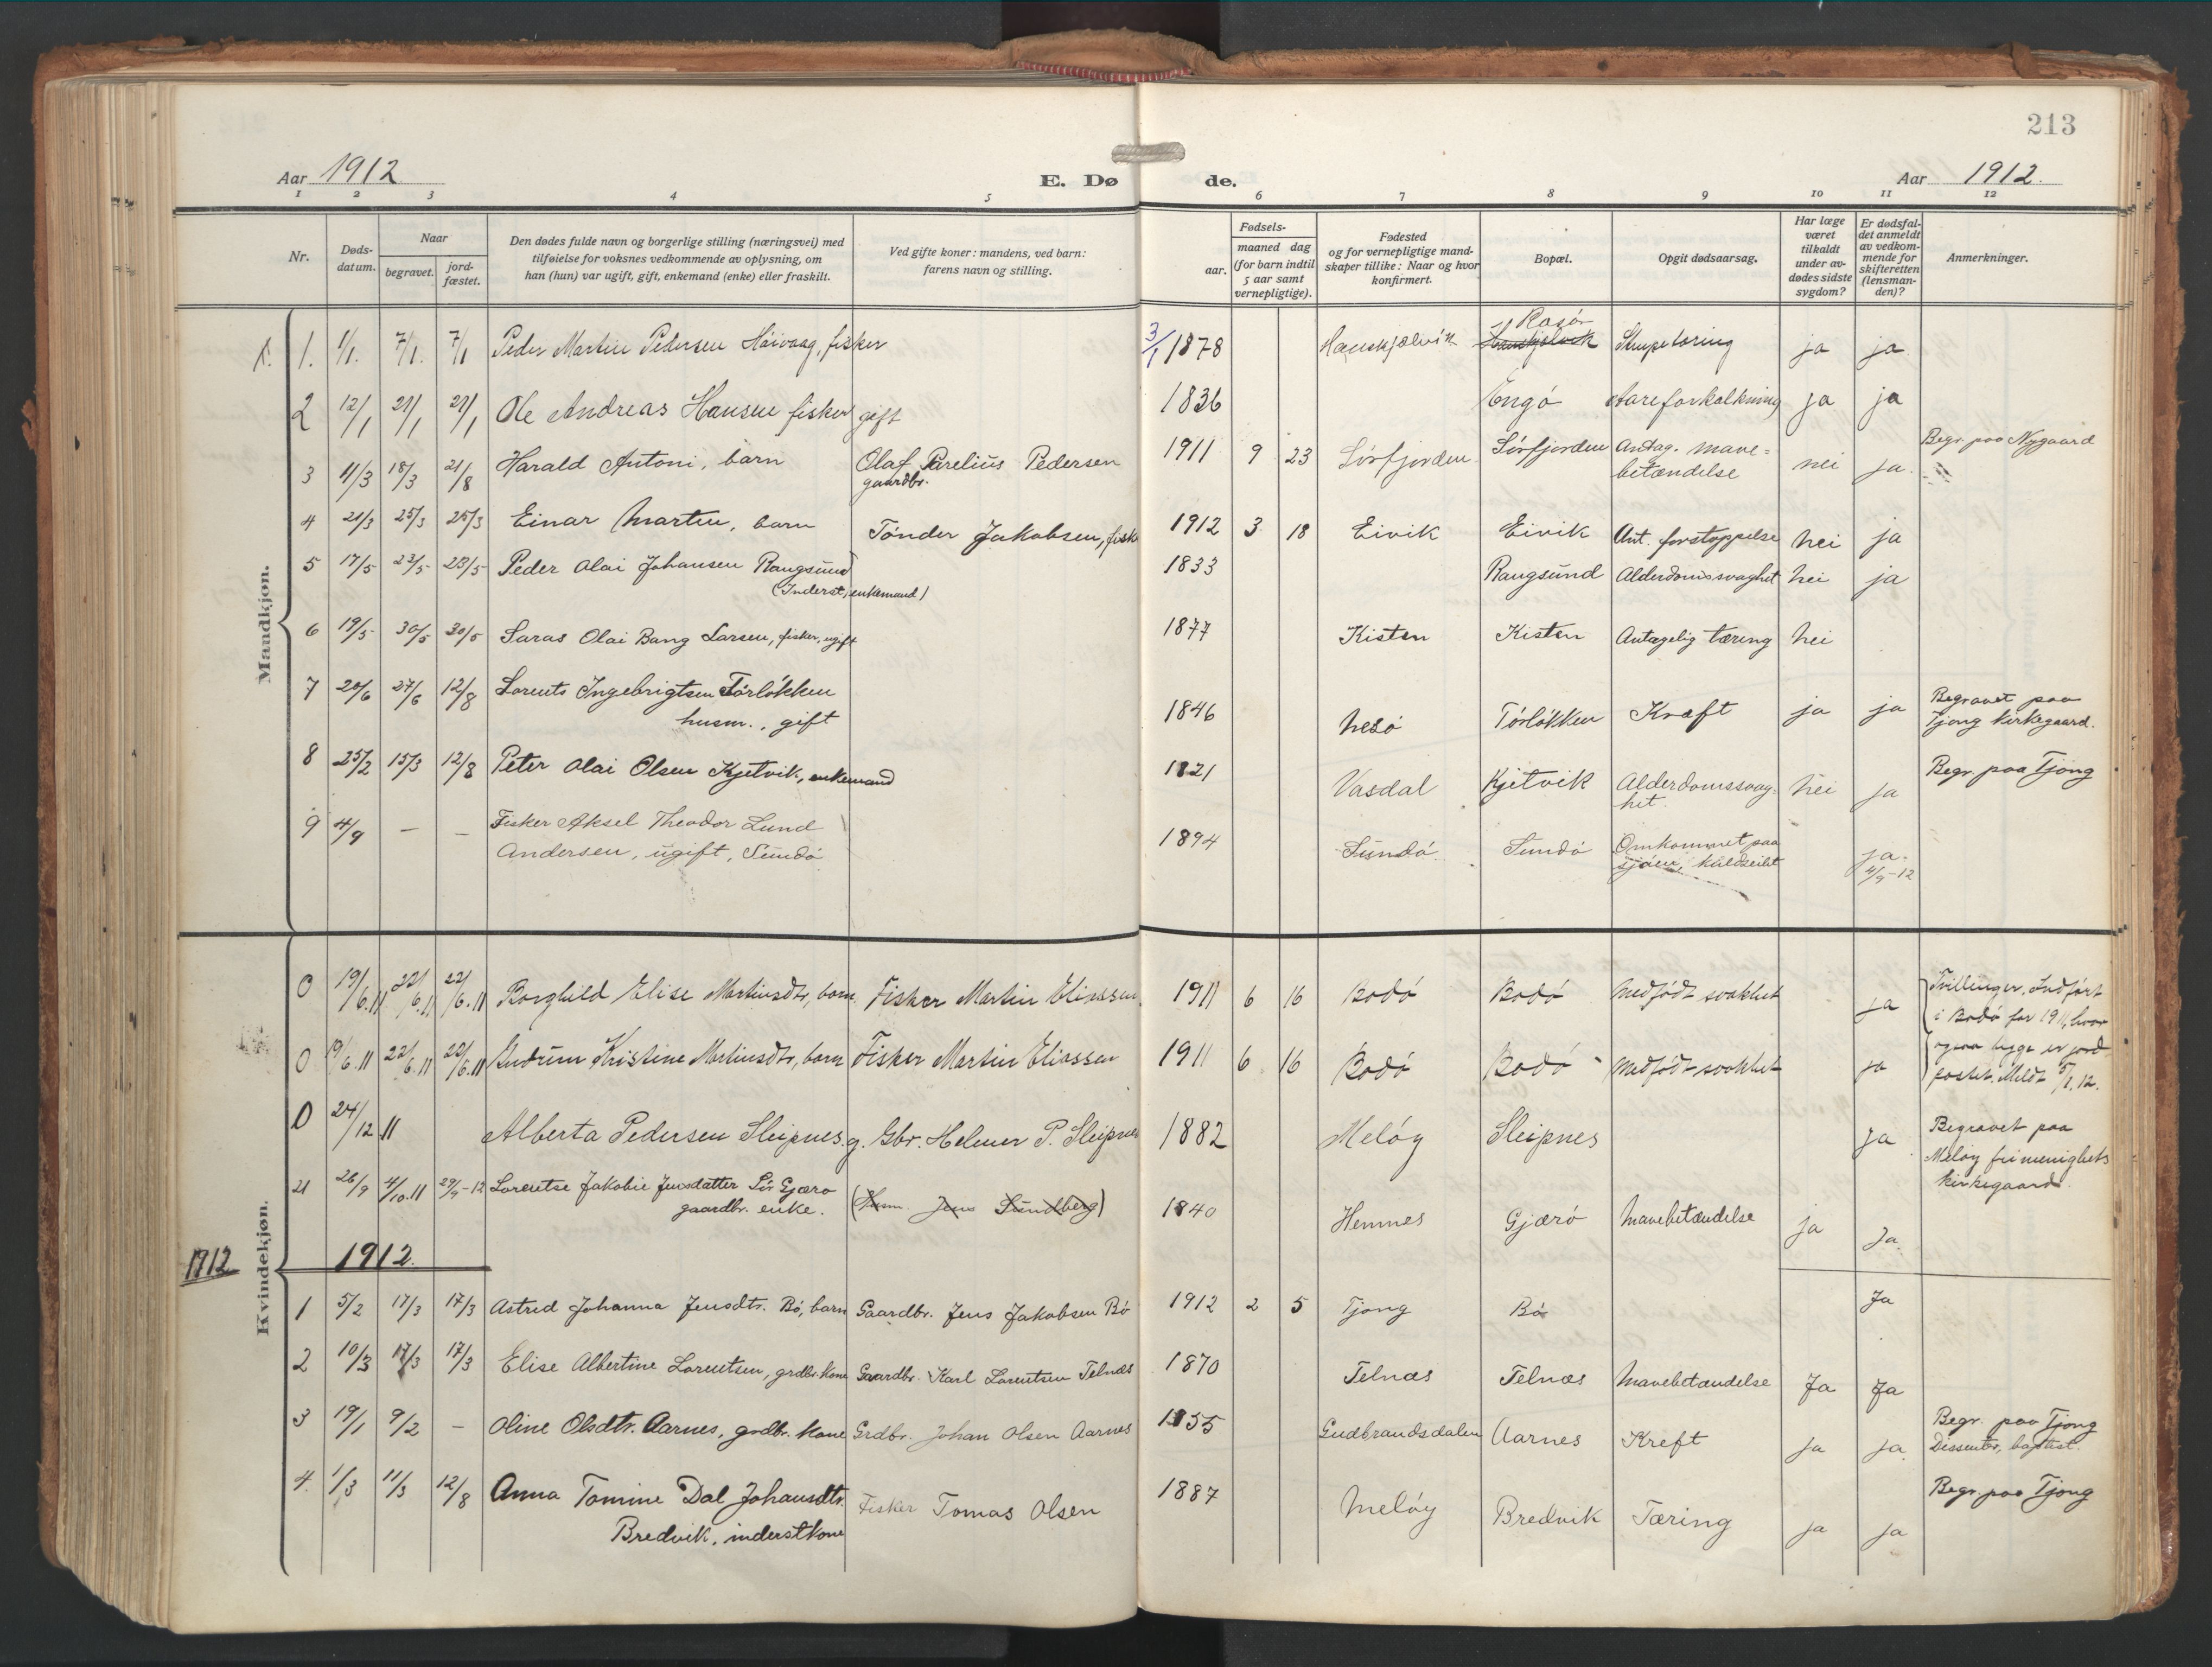 213
Aar 1912
E. Dø
de.
Aar 1912.
1 2 3 4 5 6 7 8 9 10 11 12
Nr.
Døds-
datum.
Naar
begravet.
jord-
fæstet.
Den dødes fulde navn og borgerlige stilling (næringsvei) med
tilføielse for voksnes vedkommende av oplysning, om
han (hun) var ugift, gift, enkemand (enke) eller fraskilt.
Ved gifte koner: mandens, ved barn:
farens navn og stilling.
Fødsels-
aar.
maaned dag
(for barn indtil
5 aar samt
vernepligtige).
Fødested
og for vernepligtige mand-
skaper tillike: Naar og hvor
konfirmert.
Bopæl.
Opgit dødsaarsag.
Har læge
været
tilkaldt
under av-
dødes sidste
sygdom?
Er dødsfal-
det anmeldt
av vedkom-
mende for
skifteretten
(lensman-
den)?
Anmerkninger.
Mandkjøn.
1. 1/1. 7/1. 7/1 Peder Martin Pedersen Håivaag, fisker 3/1 1878 Hanskjælvik Rasör Hanskjælvik Strupetæring ja ja
2 12/1 21/1 21/1 Ole Andreas Hansen fisker gift 1836 Engö Aareforkalkning ja ja
3 11/3 18/3 21/8 Harald Antoni, barn Olaf Parelius Pedersen 1911 9 23 Sörfjorden Sörfjorden Antag. mave- nei ja. Begr. paa Nygaard
gaardbr. betændelse
4 21/3 25/3 25/3 Einar Martin, barn Tönder Jakobsen, fisk 1912 3 18 Eivik Eivik Ant. forstoppelse nei ja
5 17/5 23/5 23/5 Peder Olai Johansen Rangsund 1833 Rangsund Alderdomssvaghet nei ja
(Inderst, enkemand)
6 19/5 30/5 30/5 Saras Olai Bang Larsen, fisker, ugift 1877 Kisten Kisten Antagelig tæring nei
7 20/6 27/6 12/8 Lorents Ingebrigtsen Törlökken 1846 Nesö Törlökken Kræft ja ja Begravet paa
husm., gift Tjong kirkegaard.
8 25/2 15/3 12/8 Peter Olai Olsen Kjetvik, enkemand 1821 Vasdal Kjetvik Alderdomssvag- nei ja Begr. paa Tjong
het.
9 4/9 — — Fisker Aksel Theodor Lund 1894 Sundö. Sundö Omkommet paa ja.
Andersen, ugift, Sundö sjöen, kuldseilt 4/9-12
Kvindekjøn.
0 19/6.11 22/6.11 22/6.11 Borghild Elise Martinsdtr, barn. Fisker Martin Eliassen. 1911 6 16 Bodö Bodö Medfödt svakhet ja Tvillinger. Indfört
i Bodö for 1911, hvor
0 19/6.11 22/6.11 22/6.11 Gudrun Kristine Martinsdtr, barn Fisker Martin Eliassen 1911 6 16 Bodö Bodö Medfödt svakhet ja ogsaa begge er jord
fæstet. Meldt 5/1.12.
0 24/12 11 Alberta Pedersen Sleipnes. g. Gbr. Helmer P. Sleipnes 1882 Melöy Sleipnes ja Begravet paa
Melöy frimenighets
kirkegaard.
21 26/9 4/10.11 29/9-12 Lorentse Jakobie Jensdatter Sör Gjærö (Husm. Jens Sundberg) 1840 Hemnes Gjærö Mavebetændelse ja Ja.
gaardbr. enke.
1912 1912.
1 5/2 17/3 17/3 Astrid Johanna Jensdtr. Bö, barn Gaardbr. Jens Jakobsen Bö 1912 2 5 Tjong Bö Ja
2 10/3 17/3 17/3 Elise Albertine Lorentsen, grdbr. kone Gaardbr. Karl Lorentsen Telnæs 1870 Telnæs Telnæs Mavebetændelse Ja Ja
3 19/1 9/2 — Oline Olsdtr. Aarnes, grdbr. kone Grdbr. Johan Olsen Aarnes 1855 Gudbrandsdalen Aarnes Kreft ja ja. Begr. paa Tjong
Dissenter, baptist.
4. 1/3 11/3 12/8 Anna Tomine Dal Johansdtr. Fisker Tomas Olsen 1887 Melöy Bredvik Tæring ja ja Begr. paa Tjong
Bredvik, inderstkone